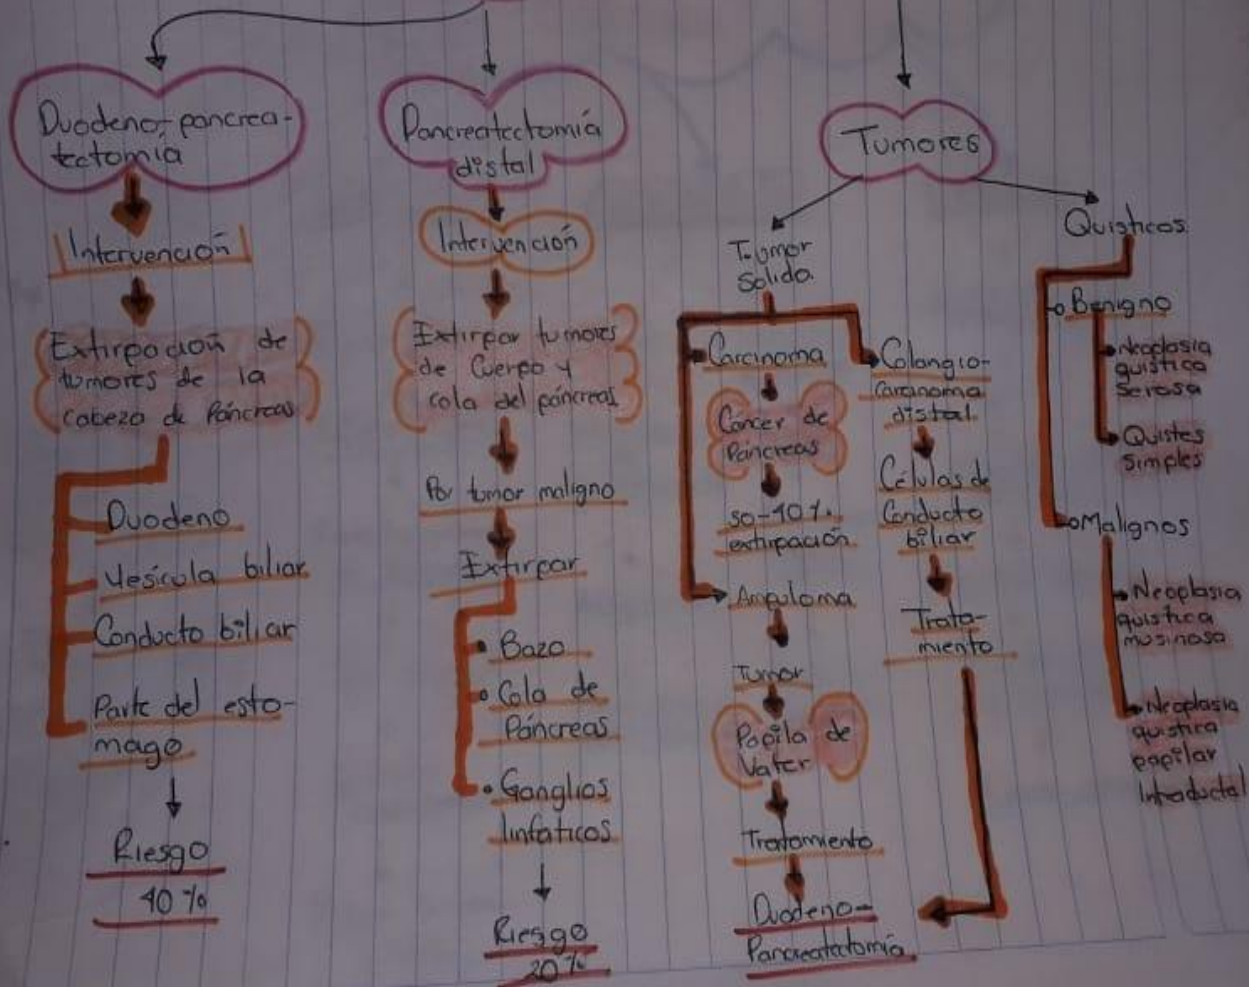 Duodeno-pancrea-
tectomía
Intervención
Extirpación de
tumores de la
cabeza de Páncreas
Duodeno
Vesícula biliar
Conducto biliar
Parte del esto-
mago
Riesgo
40%
Pancreatectomía
distal
Intervención
Extirpar tumores
de Cuerpo y
cola del páncreas
Por tumor maligno
Extirpar
Bazo
Cola de
Páncreas
Ganglios
linfaticos
Riesgo
20%
Tumores
Tumor
Solida
Carcinoma
Cáncer de
Páncreas
extirpación
Ampuloma
Tumor
Papila de
Vater
Tratamiento
Duodeno-
Pancreatectomía
Colangio-
Carcinoma
distal
Células de
Conducto
biliar
Trata-
miento
Quisticos
Benigno
Neoplasia
quistica
Serosa
Quistes
Simples
Malignos
Neoplasia
quistica
musinosa
Neoplasia
quistica
papilar
Intraductal